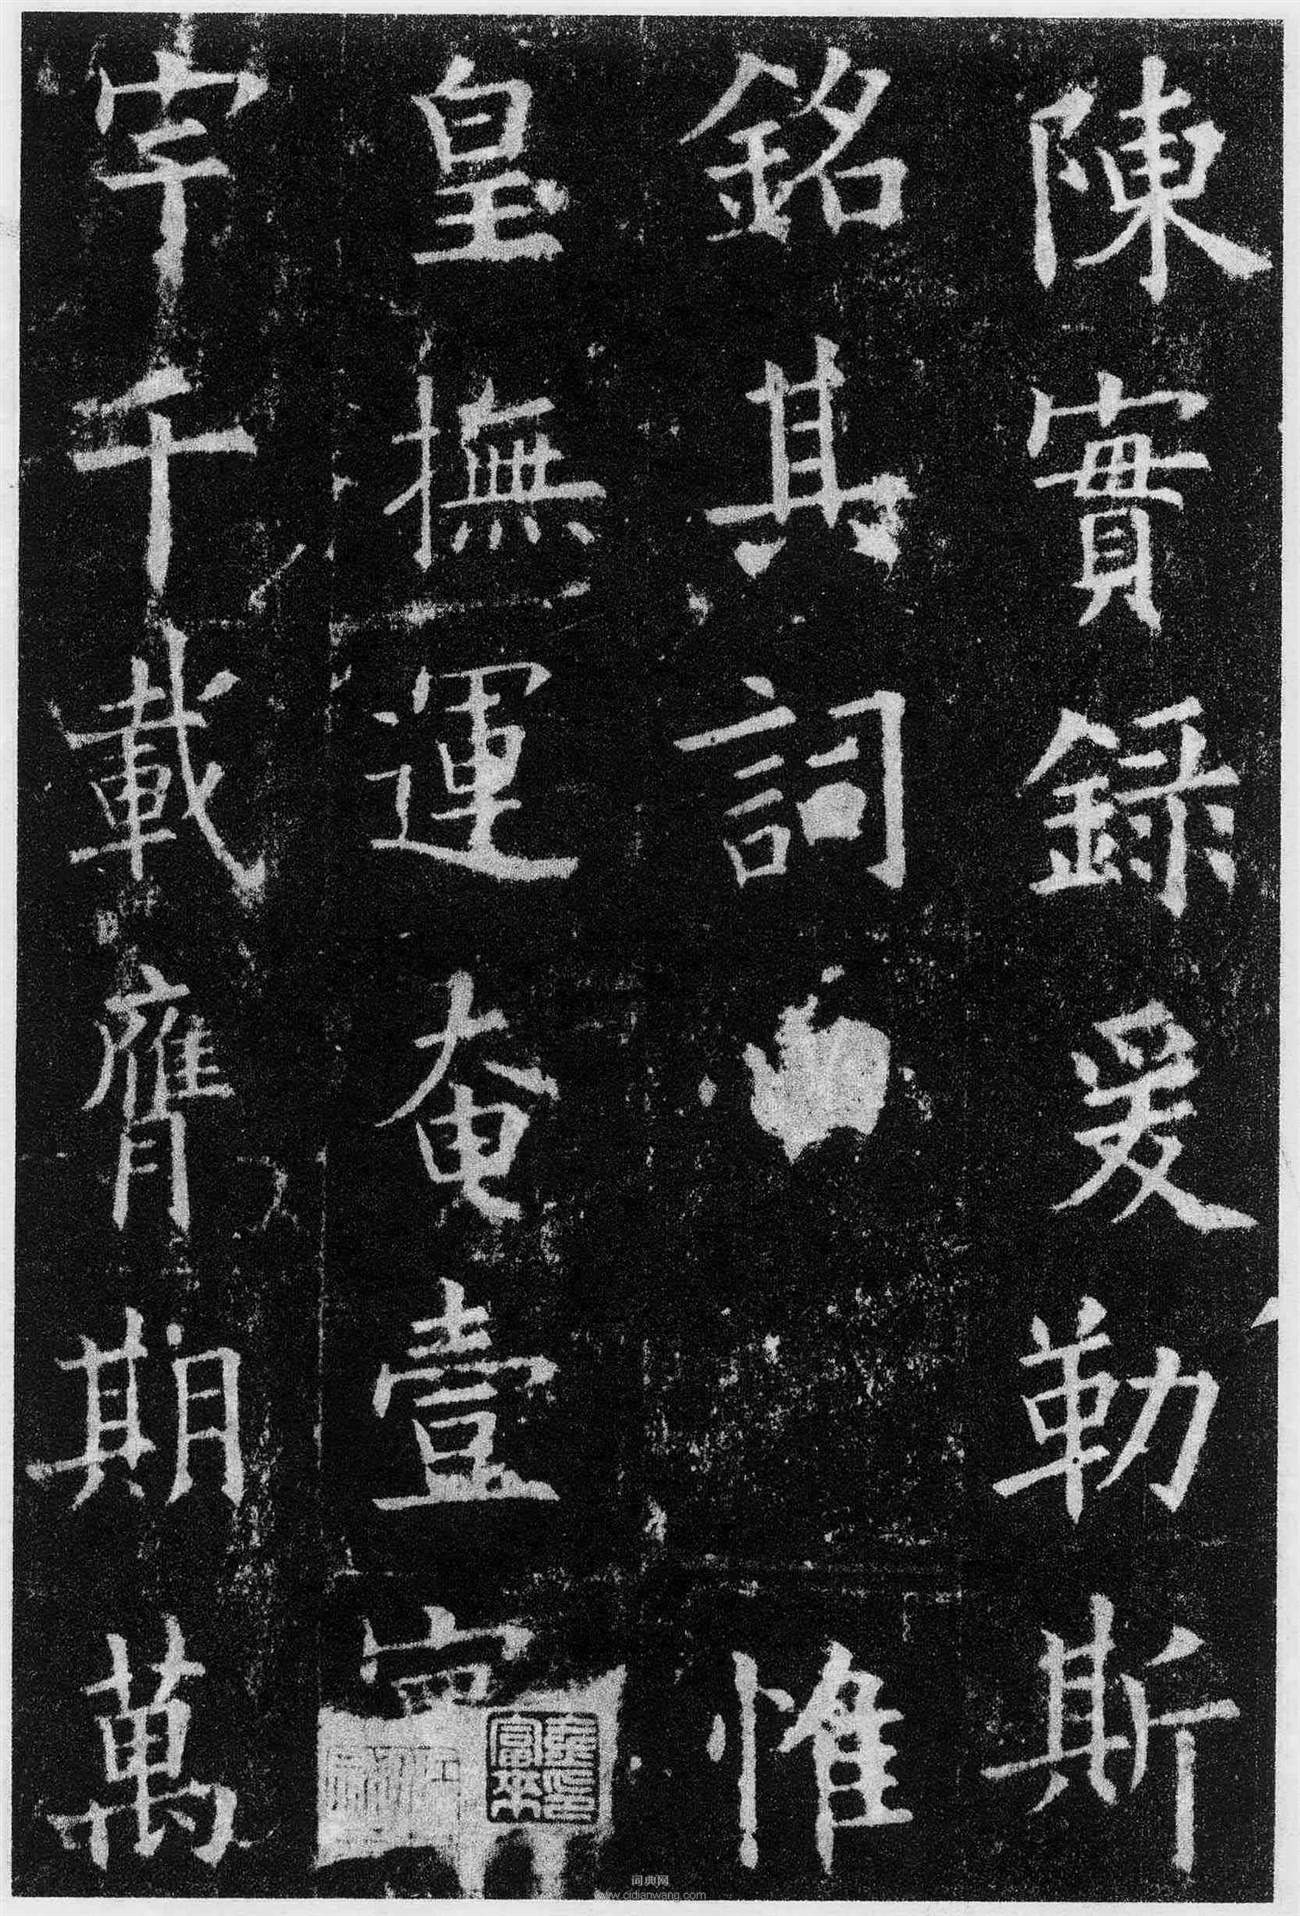 陳實錄爰勒斯
銘其詞惟
皇撫運奄壹
宇千載膺期萬
词典网
www.cidianwang.com